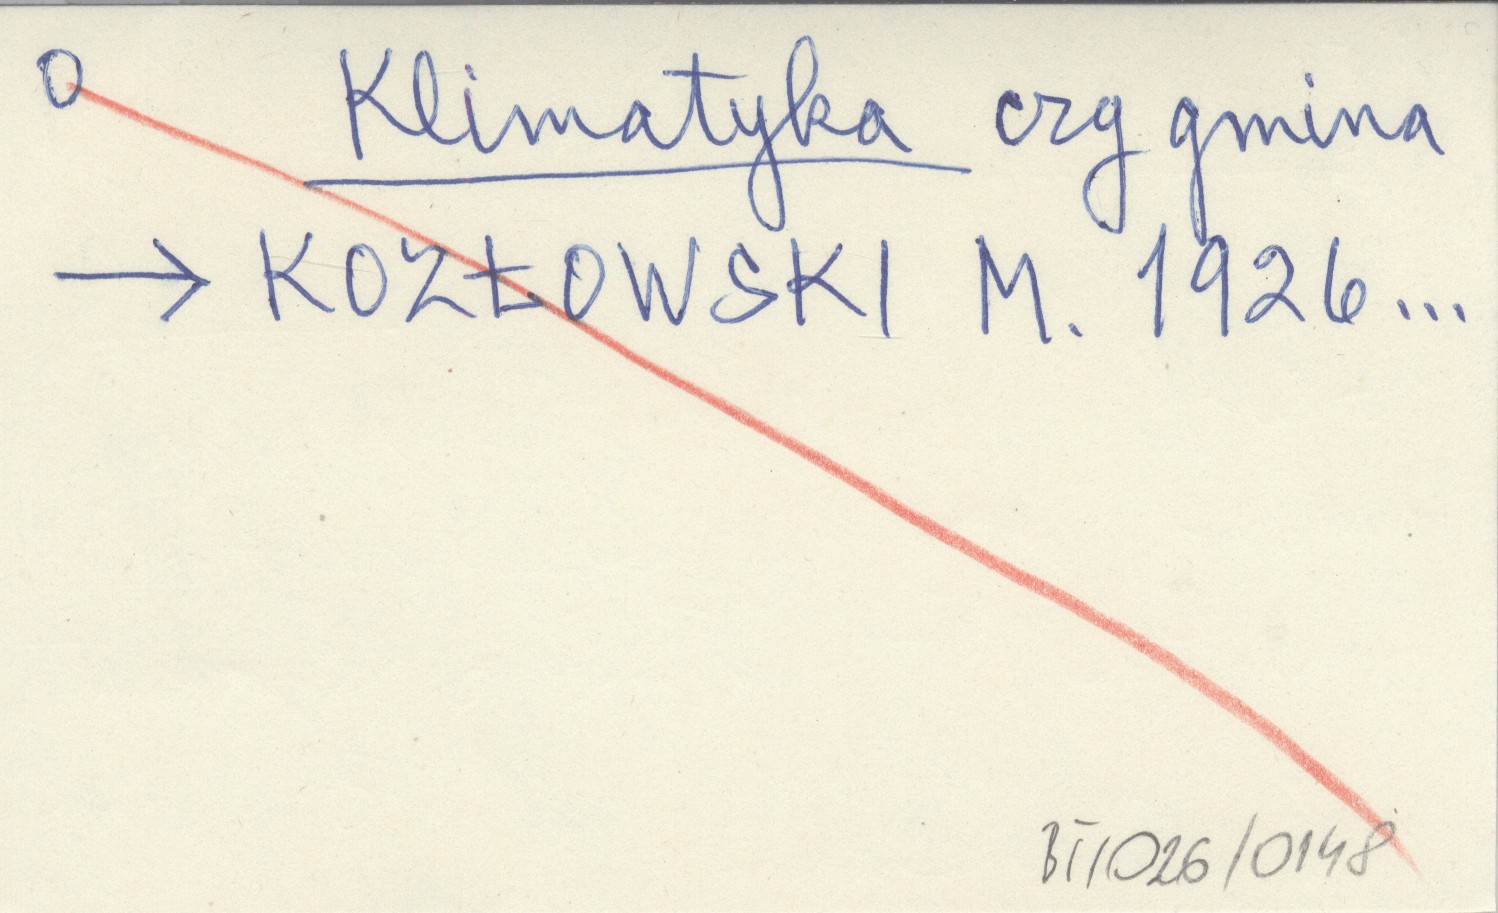 O Klimatyka czy gmina
→ KOZŁOWSKI M. 1926...
BT/026/0148